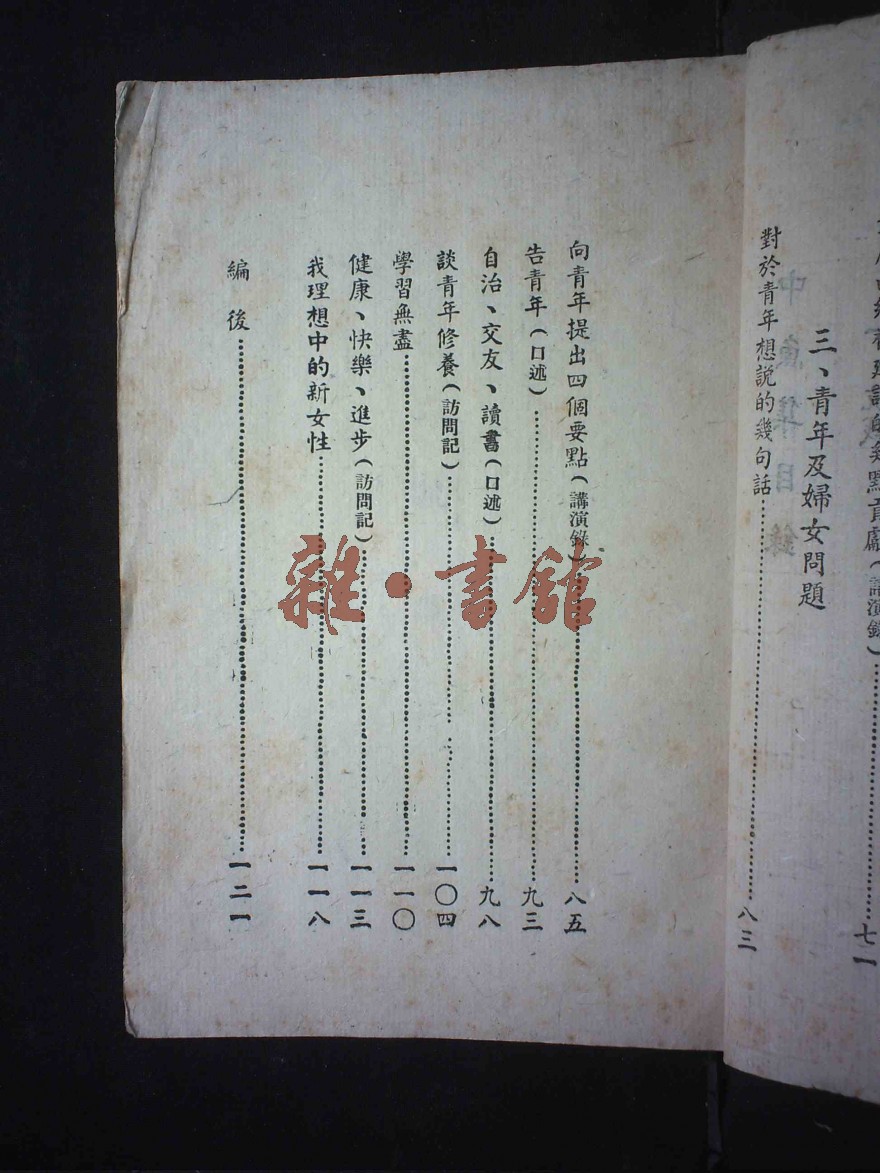 三、青年及婦女問題
對於青年想說的幾句話……八三
向青年提出四個要點(講演錄)……八五
告青年(口述)……九三
自治、交友、讀書(口述)……九八
談青年修養(訪問記)……一〇四
學習無盡……一一〇
健康、快樂、進步(訪問記)……一一三
我理想中的新女性……一一八
編後……一二一
雜·書館